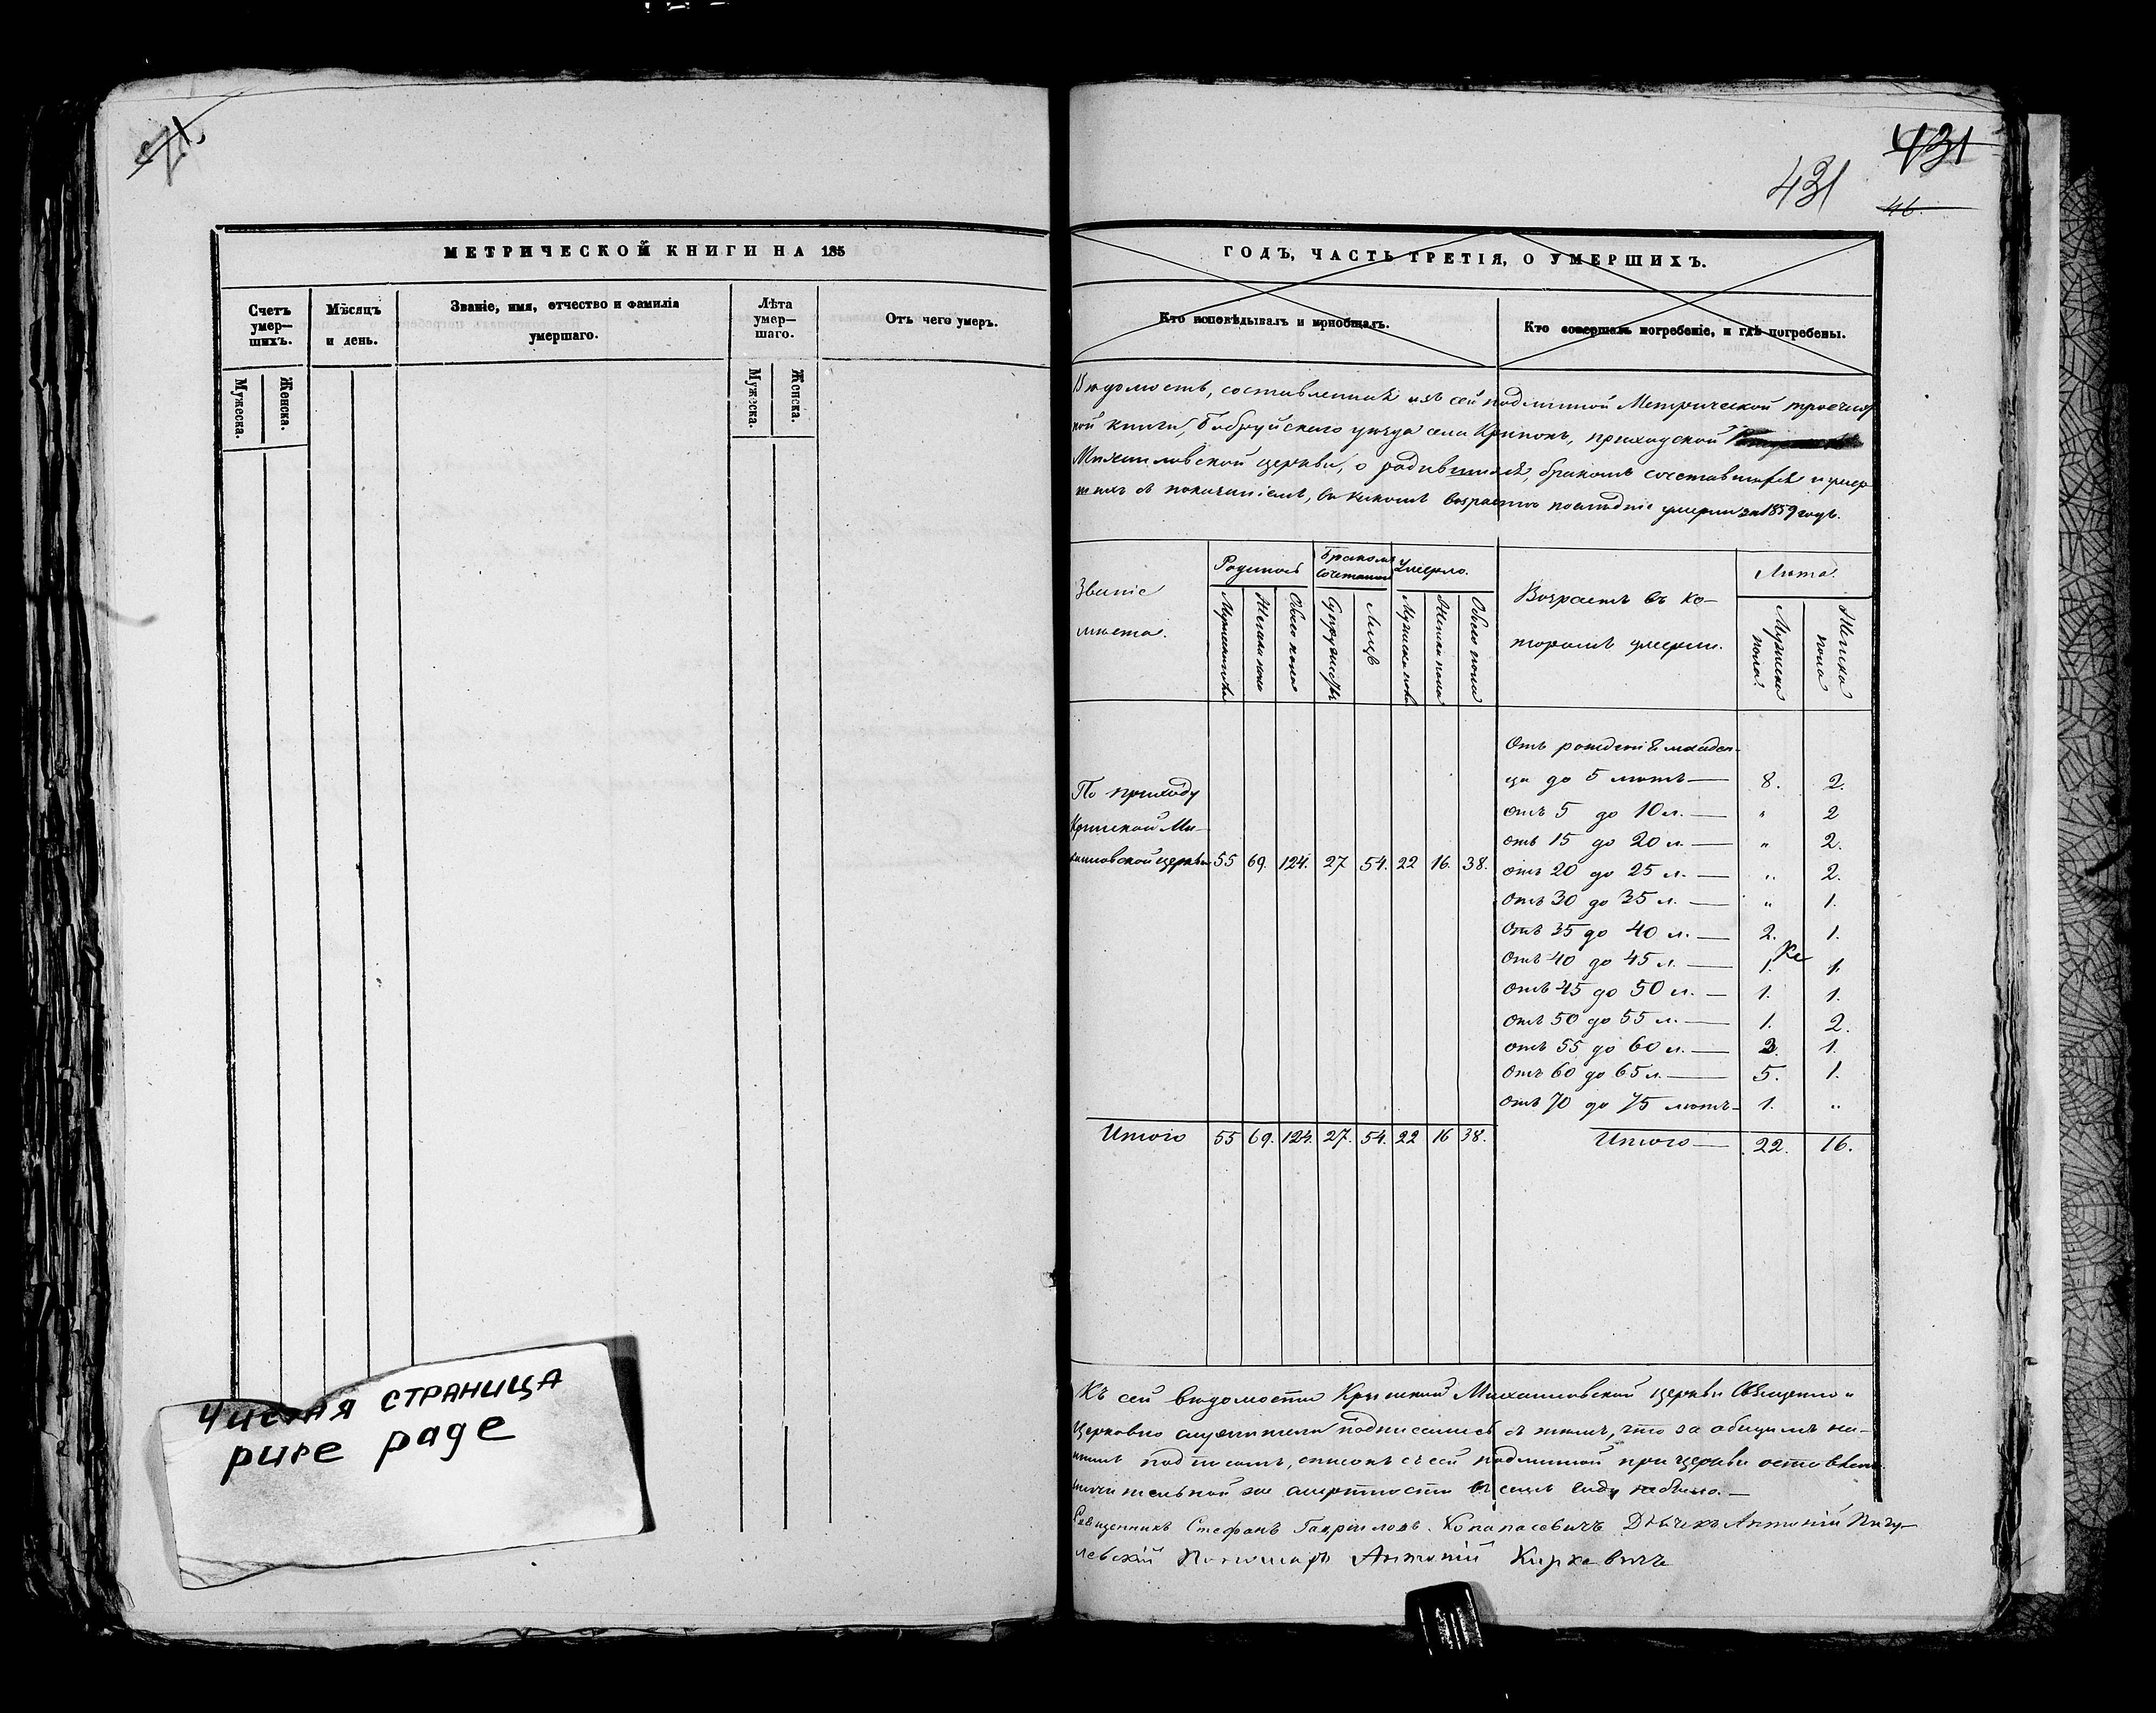 71.
МЕТРИЧЕСКОЙ КНИГИ НА 185
Счетъ умер—шихъ.
Мѣсяцъ и день.
Званіе, имя, отчество и фамилія умершаго.
Лѣта умер—шаго.
Отъ чего умеръ.
Мужеска.
Женска.
Мужеска.
Женска.
Чистая страница
pure page
431
431
46.
ГОДЪ, ЧАСТЬ ТРЕТІЯ, О УМЕРШИХЪ.
Кто исповѣдывалъ и пріобщалъ.
Кто совершалъ погребеніе, и гдѣ погребены.
Вѣдомость, составленная изъ сей подлинной Метрической троечаст
ной книги, Бобруйскаго уѣзда села Кринокъ, приходской
Михаиловской церкви, о родившихся, бракомъ сочетавшихся и умер
шихъ съ показаніемъ, въ какомъ возрастѣ послѣдніе умерли за 1859 годъ.
Званіе мѣста.
Родилось
Бракомъ сочетано
Умерло.
Возрастъ въ ко—
торомъ умерли.
Лѣта.
Мужеска пола
Женска пола
Обоего пола
Супружествъ
Лицъ
Мужеска пола
Женска пола
Обоего пола
Мужеска пола.
Женска пола
Отъ рожденія младен—
ца до 5 лѣтъ — 8. 2.
отъ 5 до 10 л. — „ 2
отъ 15 до 20 л. — „ 2.
отъ 20 до 25 л. — „ 2.
отъ 30 до 35 л. — „ 1.
отъ 35 до 40 л. — 2. 1.
отъ 40 до 45 л. — 1. 1.
отъ 45 до 50 л. — 1. 1.
отъ 50 до 55 л. — 1. 2.
отъ 55 до 60 л. — 3. 1.
отъ 60 до 65 л. — 5. 1.
отъ 70 до 75 лѣтъ — 1. „
По приходу
Кринской Ми—
хаиловской церкви 55 69. 124. 27 54. 22 16. 38.
Итого 55 69. 124. 27. 54. 22 16 38.
Итого — 22. 16.
Къ сей вѣдомости Кринской Михаиловской церкви Священно и
Церковно служители подписались съ тѣмъ, что за общимъ на—
шимъ подписомъ, списокъ съ сей подлинной при церкви оставленъ
смертности въ семъ году небыло. —
Священникъ Стефанъ Гавриловъ Дьячекъ Антоній
Пономарь Антоній Киркевичъ